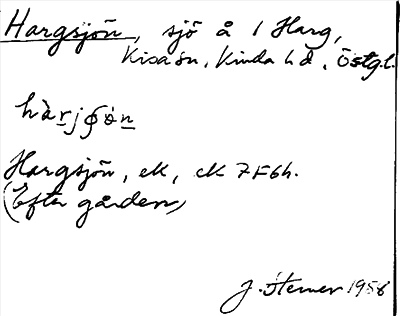 Hargsjön, sjö å 1 Harg,
Kisa sn, Kinda hd, Östg.l.
Hargsjön, ek, ek 7F6h.
(Efter gården)
J. Sterner 1958